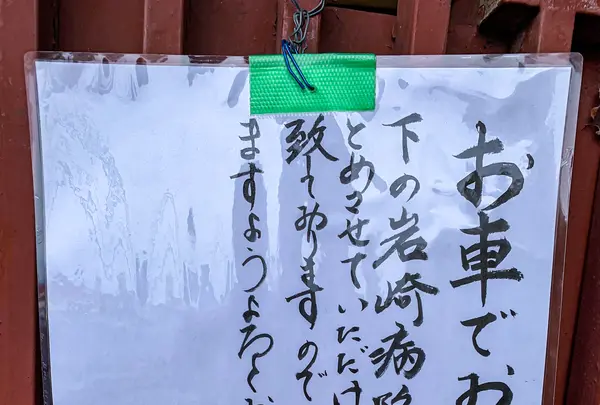 お車で、お
下の岩崎病院
とめさせていただけ
致しておりますので
ますようよろしくお